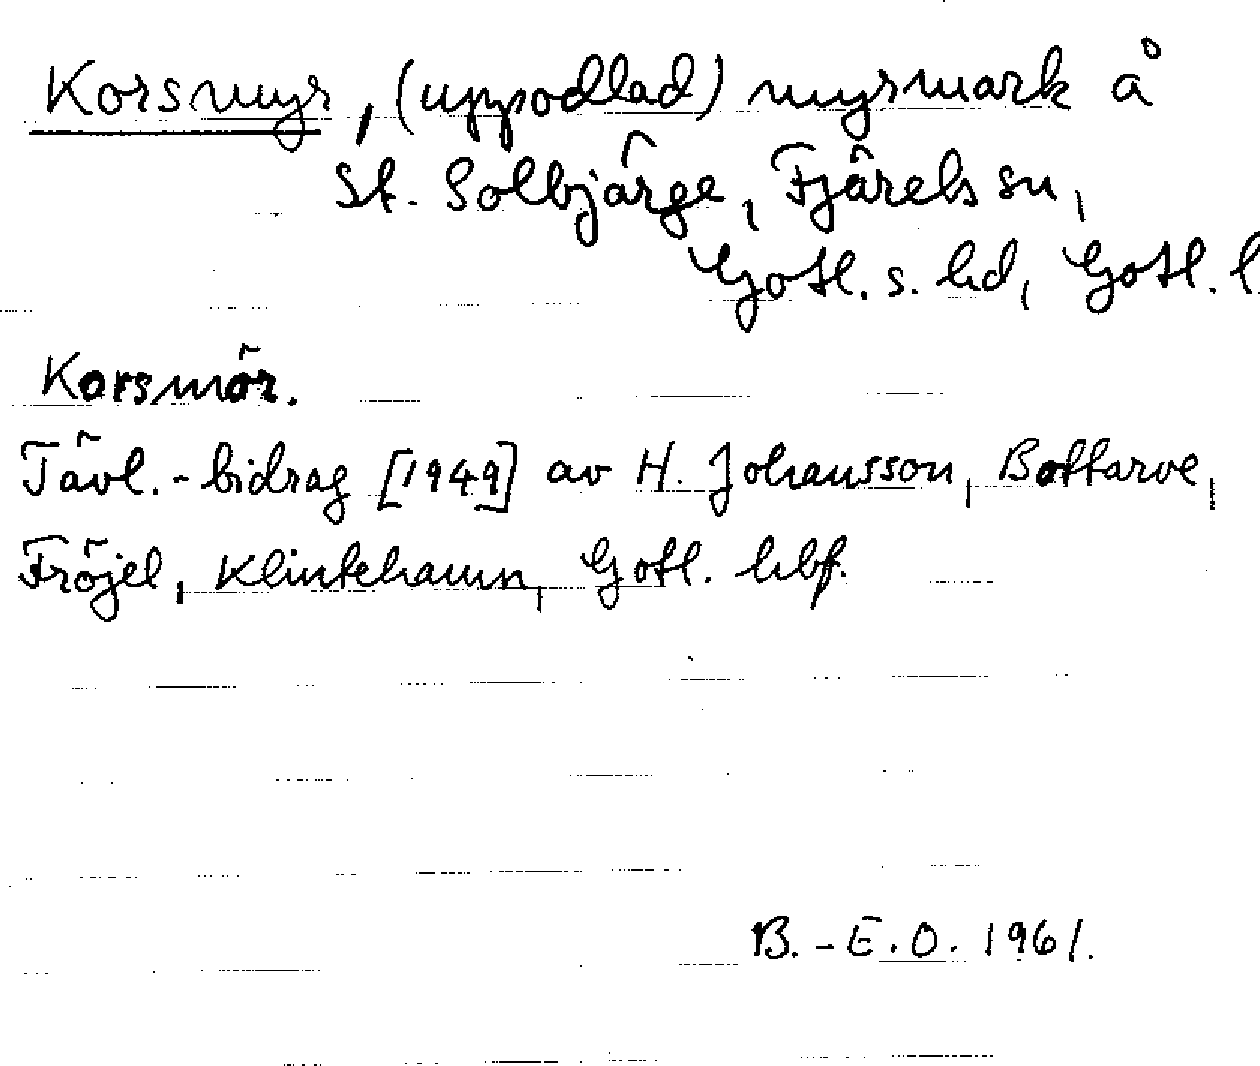 Korsmyr, (uppodlad) myrmark å
St. Solbjärge, Fjärels sn,
Gotl. s. hd, Gotl. l
Korsmör.
Tävl.-bidrag [1949] av H. Johansson, Bottarve,
Fröjel, Klintehamn, Gotl. hbf.
B.-E.O. 1961.